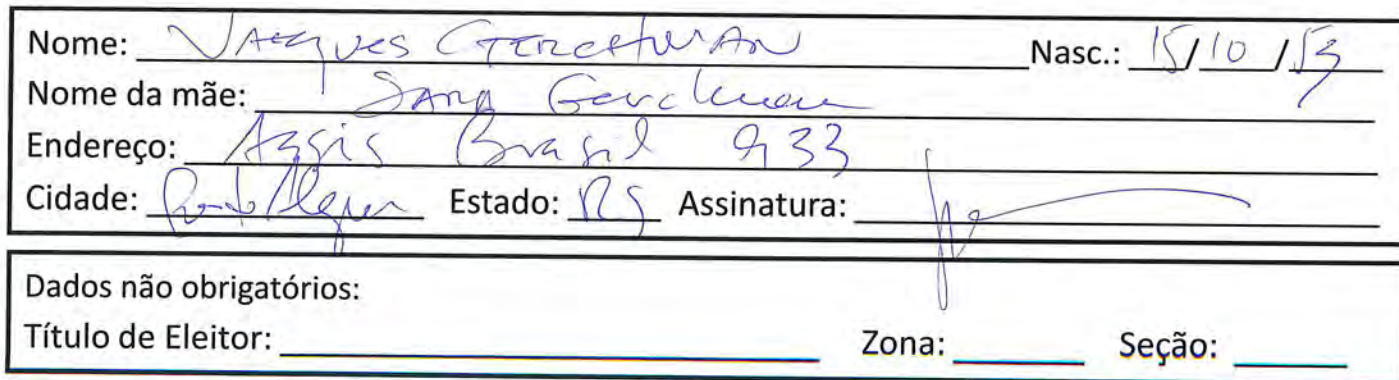 Nome: Jacques Gerchman Nasc.: 15/10/53
Nome da mãe: Sara Gerchman
Endereço: Assis Brasil 933
Cidade: Porto Alegre Estado: RS Assinatura:
Dados não obrigatórios:
Título de Eleitor: Zona: Seção: